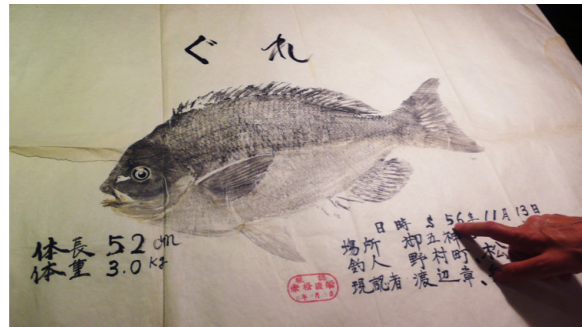 ぐれ
体長 52cm
体重 3.0kg
日時 S56年11月13日
場所 御五神
釣人 野村町 松
現認者 渡辺章